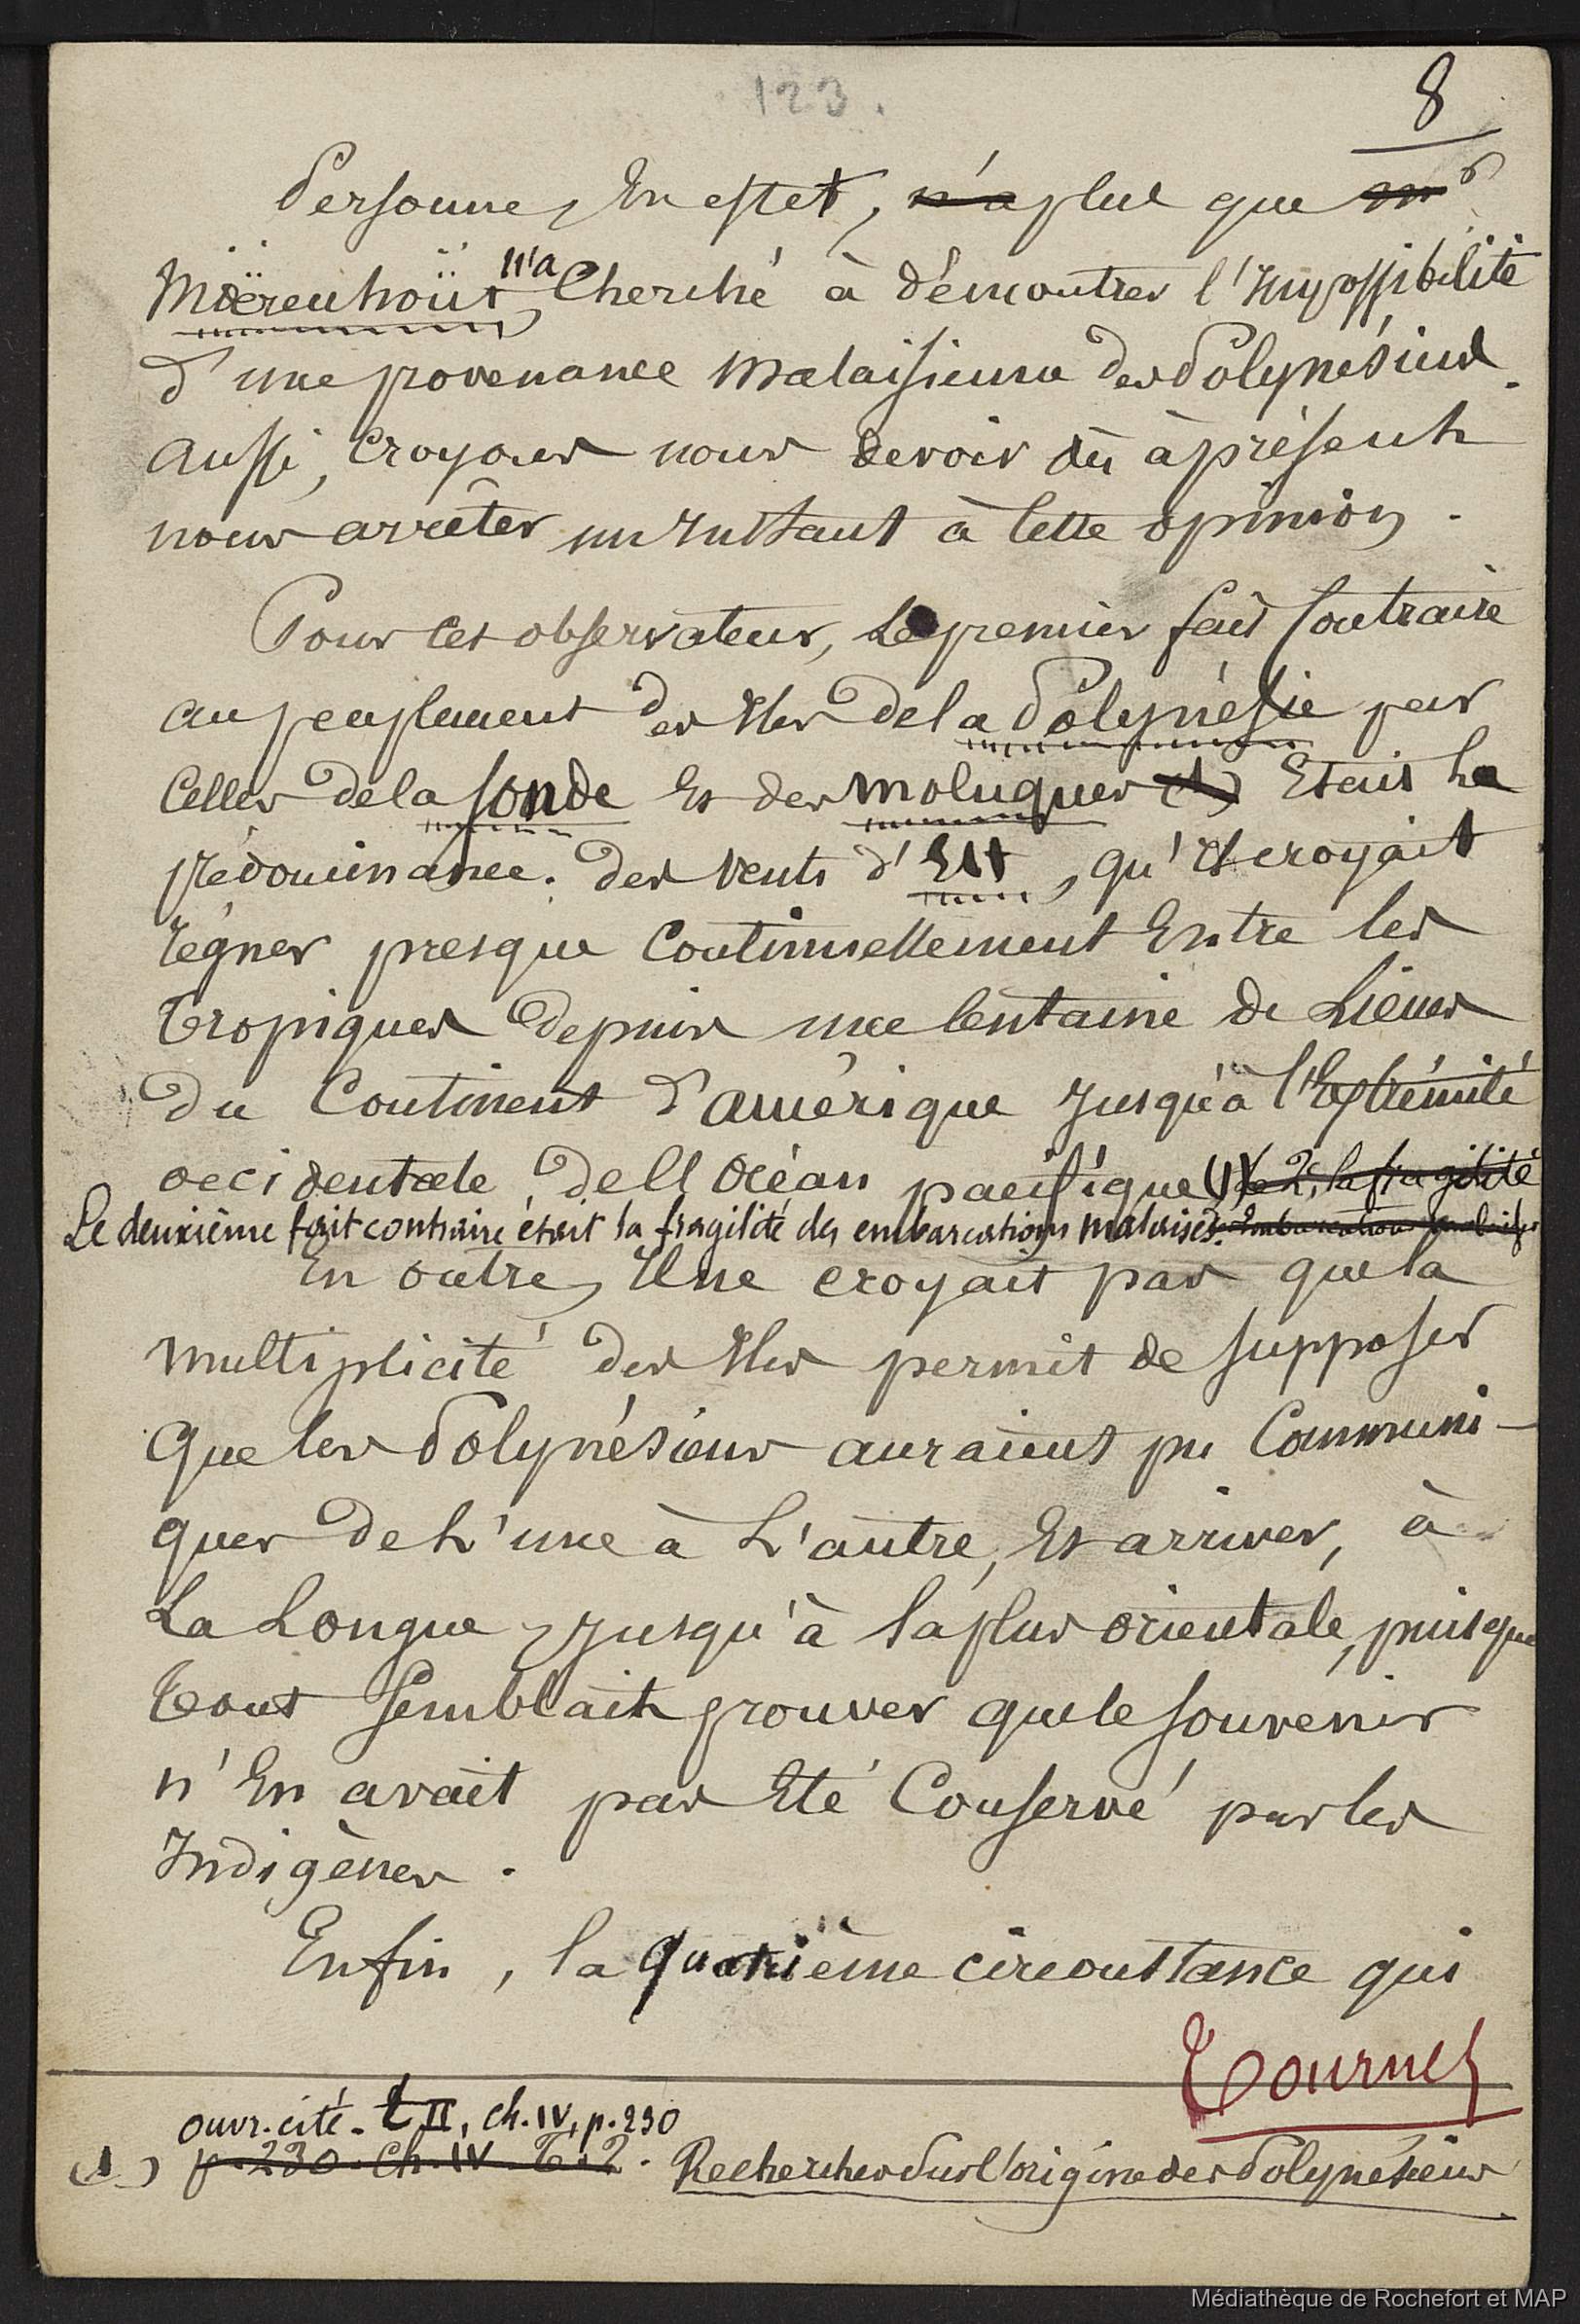 123.
8
Personne, En effet, n'a plus que Mr
Moërenhoüt, n'a Cherché à démontrer l'Impossibilité
d'une provenance malaisienne des Polynésiens.
Aussi, Croyons nous devoir dès à présent
nous arrêter un Instant à Cette opinion.
Pour Cet observateur, Le premier fait Contraire
au peuplement des Iles de la Polynésie par
Celles de la Sonde Et des moluques (1) Etait La
prédominance. des vents d'Est, qu'Il croyait
régner presque Continuellement Entre les
Tropiques depuis une Centaine de Lieues
du Continent d'amérique Jusqu'à l'Extrémité
occidentale de l'Océan pacifique (1) de 2°, la fragilité
Le deuxième fait contraire était la fragilité des embarcations malaises. Embarcations malaises
En outre, Il ne croyait pas que la
multiplicité des Iles permit de supposer
Que les Polynésiens auraient pu Communi-
quer de L'une à L'autre, Et arriver, à
La Longue, Jusqu'à la plus orientale, puisque
Tout semblait prouver que le souvenir
n'En avait pas Eté Conservé par les
Indigènes.
Enfin, la quatrième circonstance qui
Tournez
ouvr. cité. t. II, ch. IV, p. 230
(1) p. 230. Ch. IV. T. 2. Recherches sur l'origine des Polynésiens
Médiathèque de Rochefort et MAP